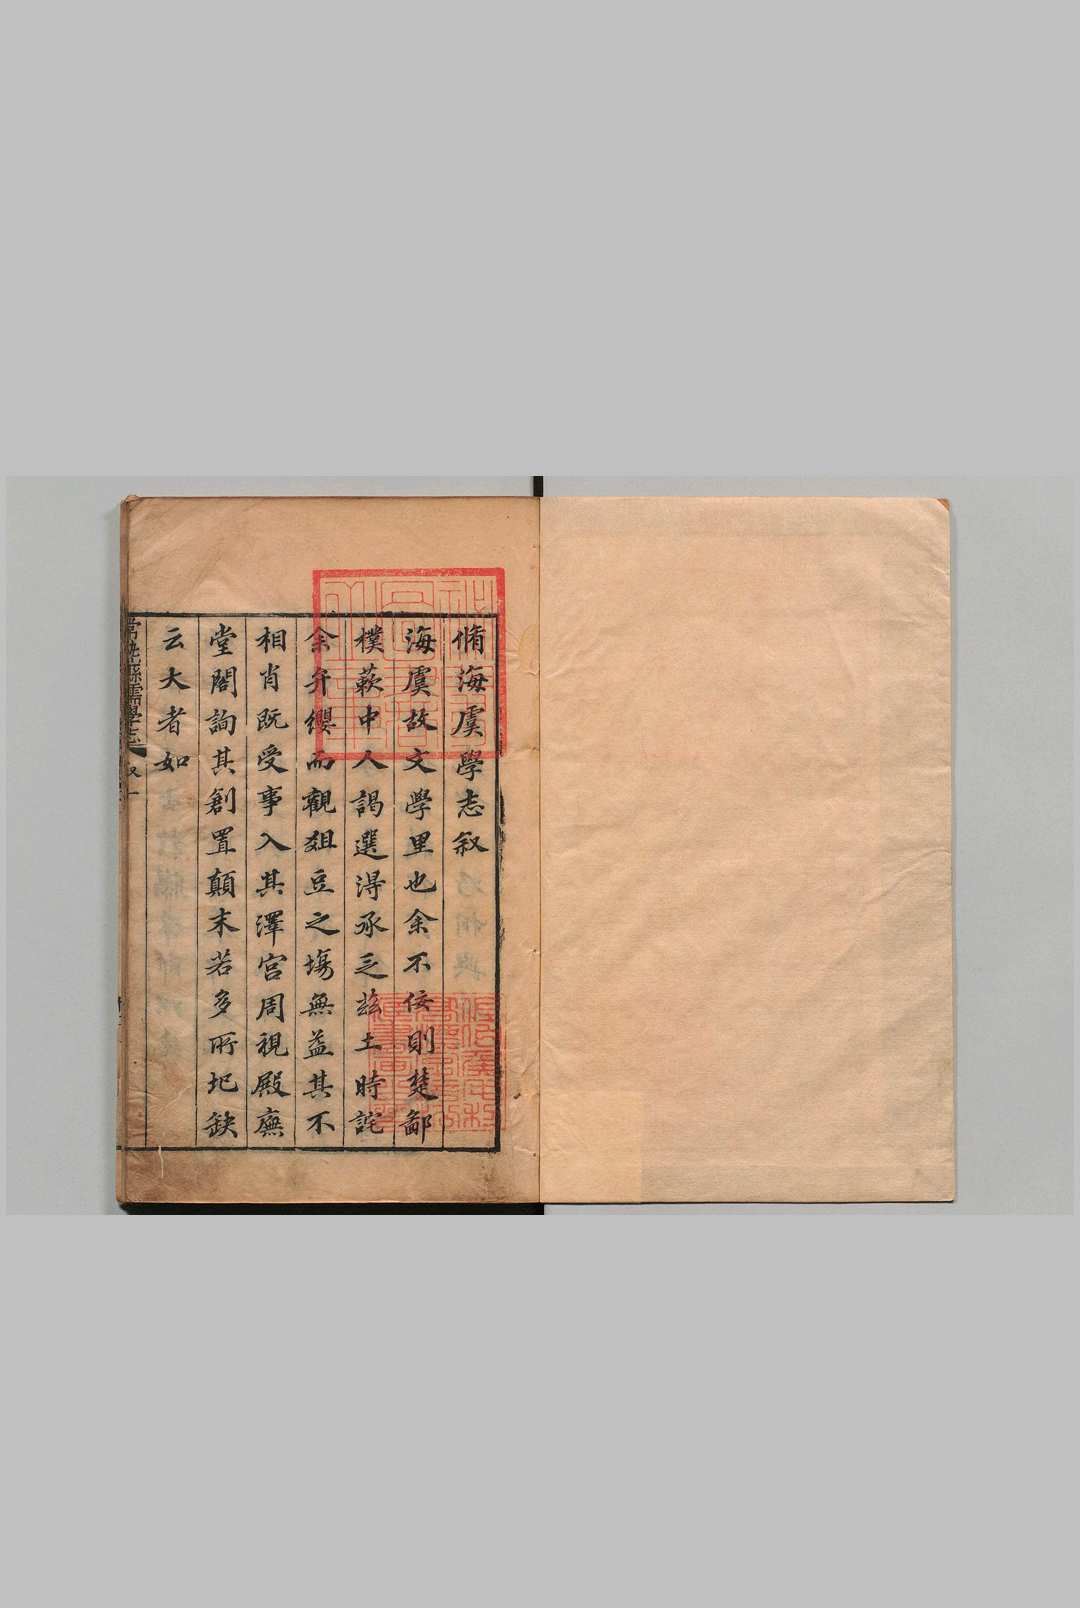 脩海虞學志叙
海虞故文學里也余不佞則楚鄙
樸蔌中人謁選得承乏茲土時詫
余弁纓而觀俎豆之塲無益其不
相肖既受事入其澤宮周視殿廡
堂閣詢其創置顛末若多所圮缺
云大者如
常熟縣儒學志
叙
一